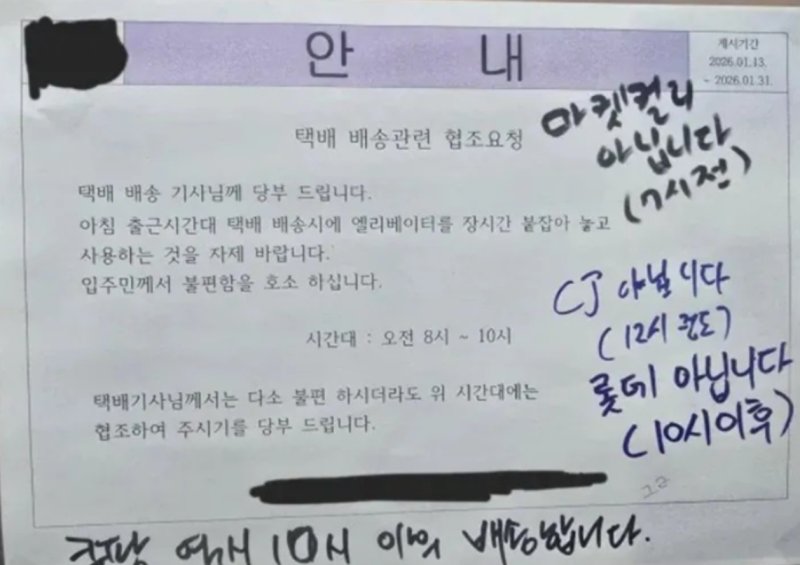 안 내
게시기간
2026.01.13.
~ 2026.01.31.
택배 배송관련 협조요청
택배 배송 기사님께 당부 드립니다.
아침 출근시간대 택배 배송시에 엘리베이터를 장시간 붙잡아 놓고
사용하는 것을 자제 바랍니다.
입주민께서 불편함을 호소 하십니다.
시간대 : 오전 8시 ~ 10시
택배기사님께서는 다소 불편 하시더라도 위 시간대에는
협조하여 주시기를 당부 드립니다.
마켓컬리
아닙니다
(7시전)
CJ 아닙니다
(12시 정도)
롯데 아닙니다
(10시이후)
쿠팡 역시 10시 이외 배송합니다.